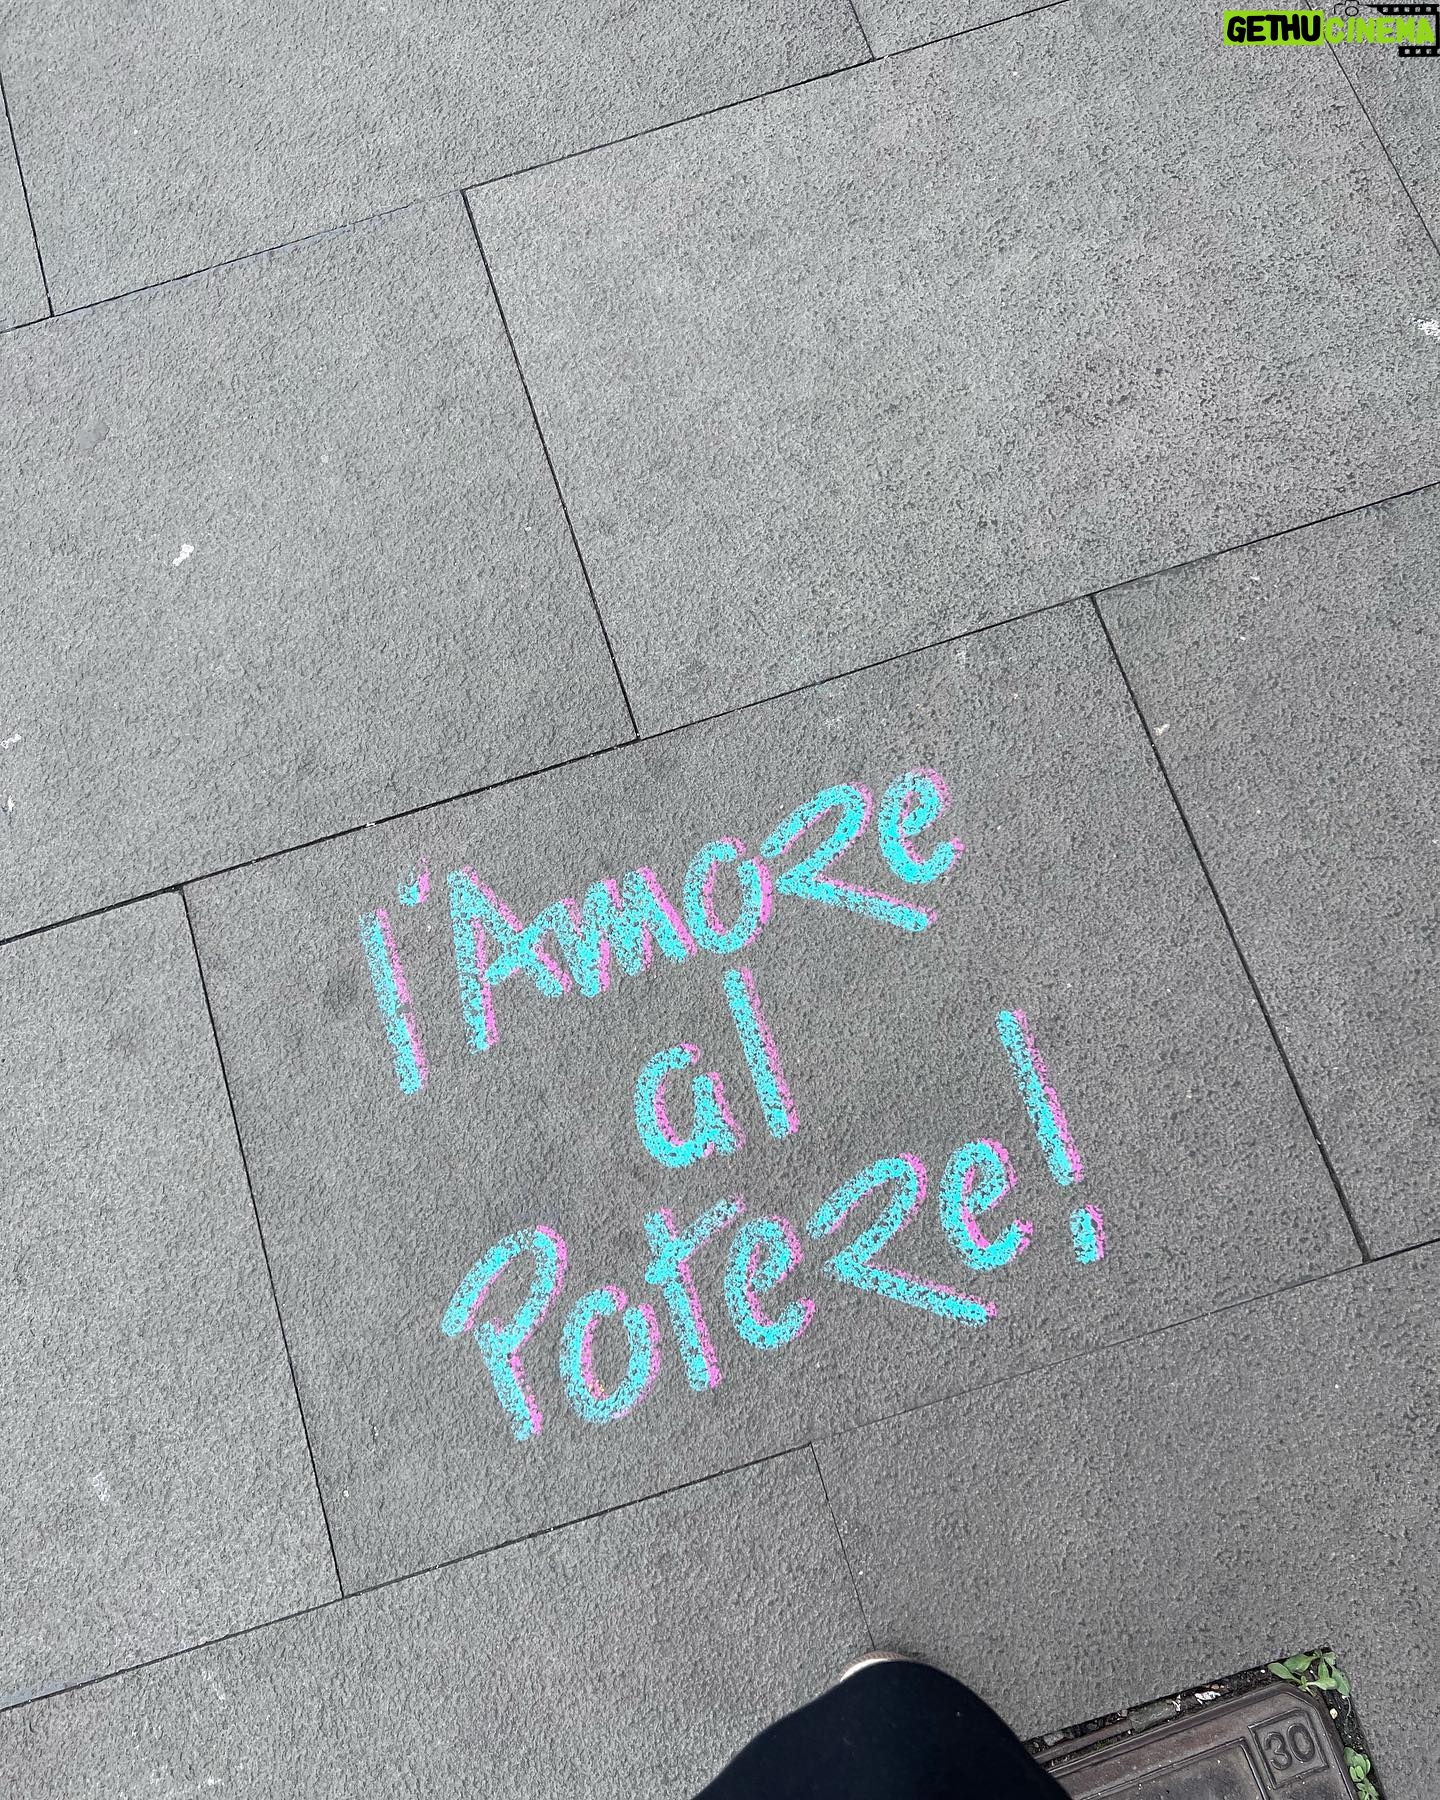 GETHUCINEMA
l'Amore
al
Potere!
30